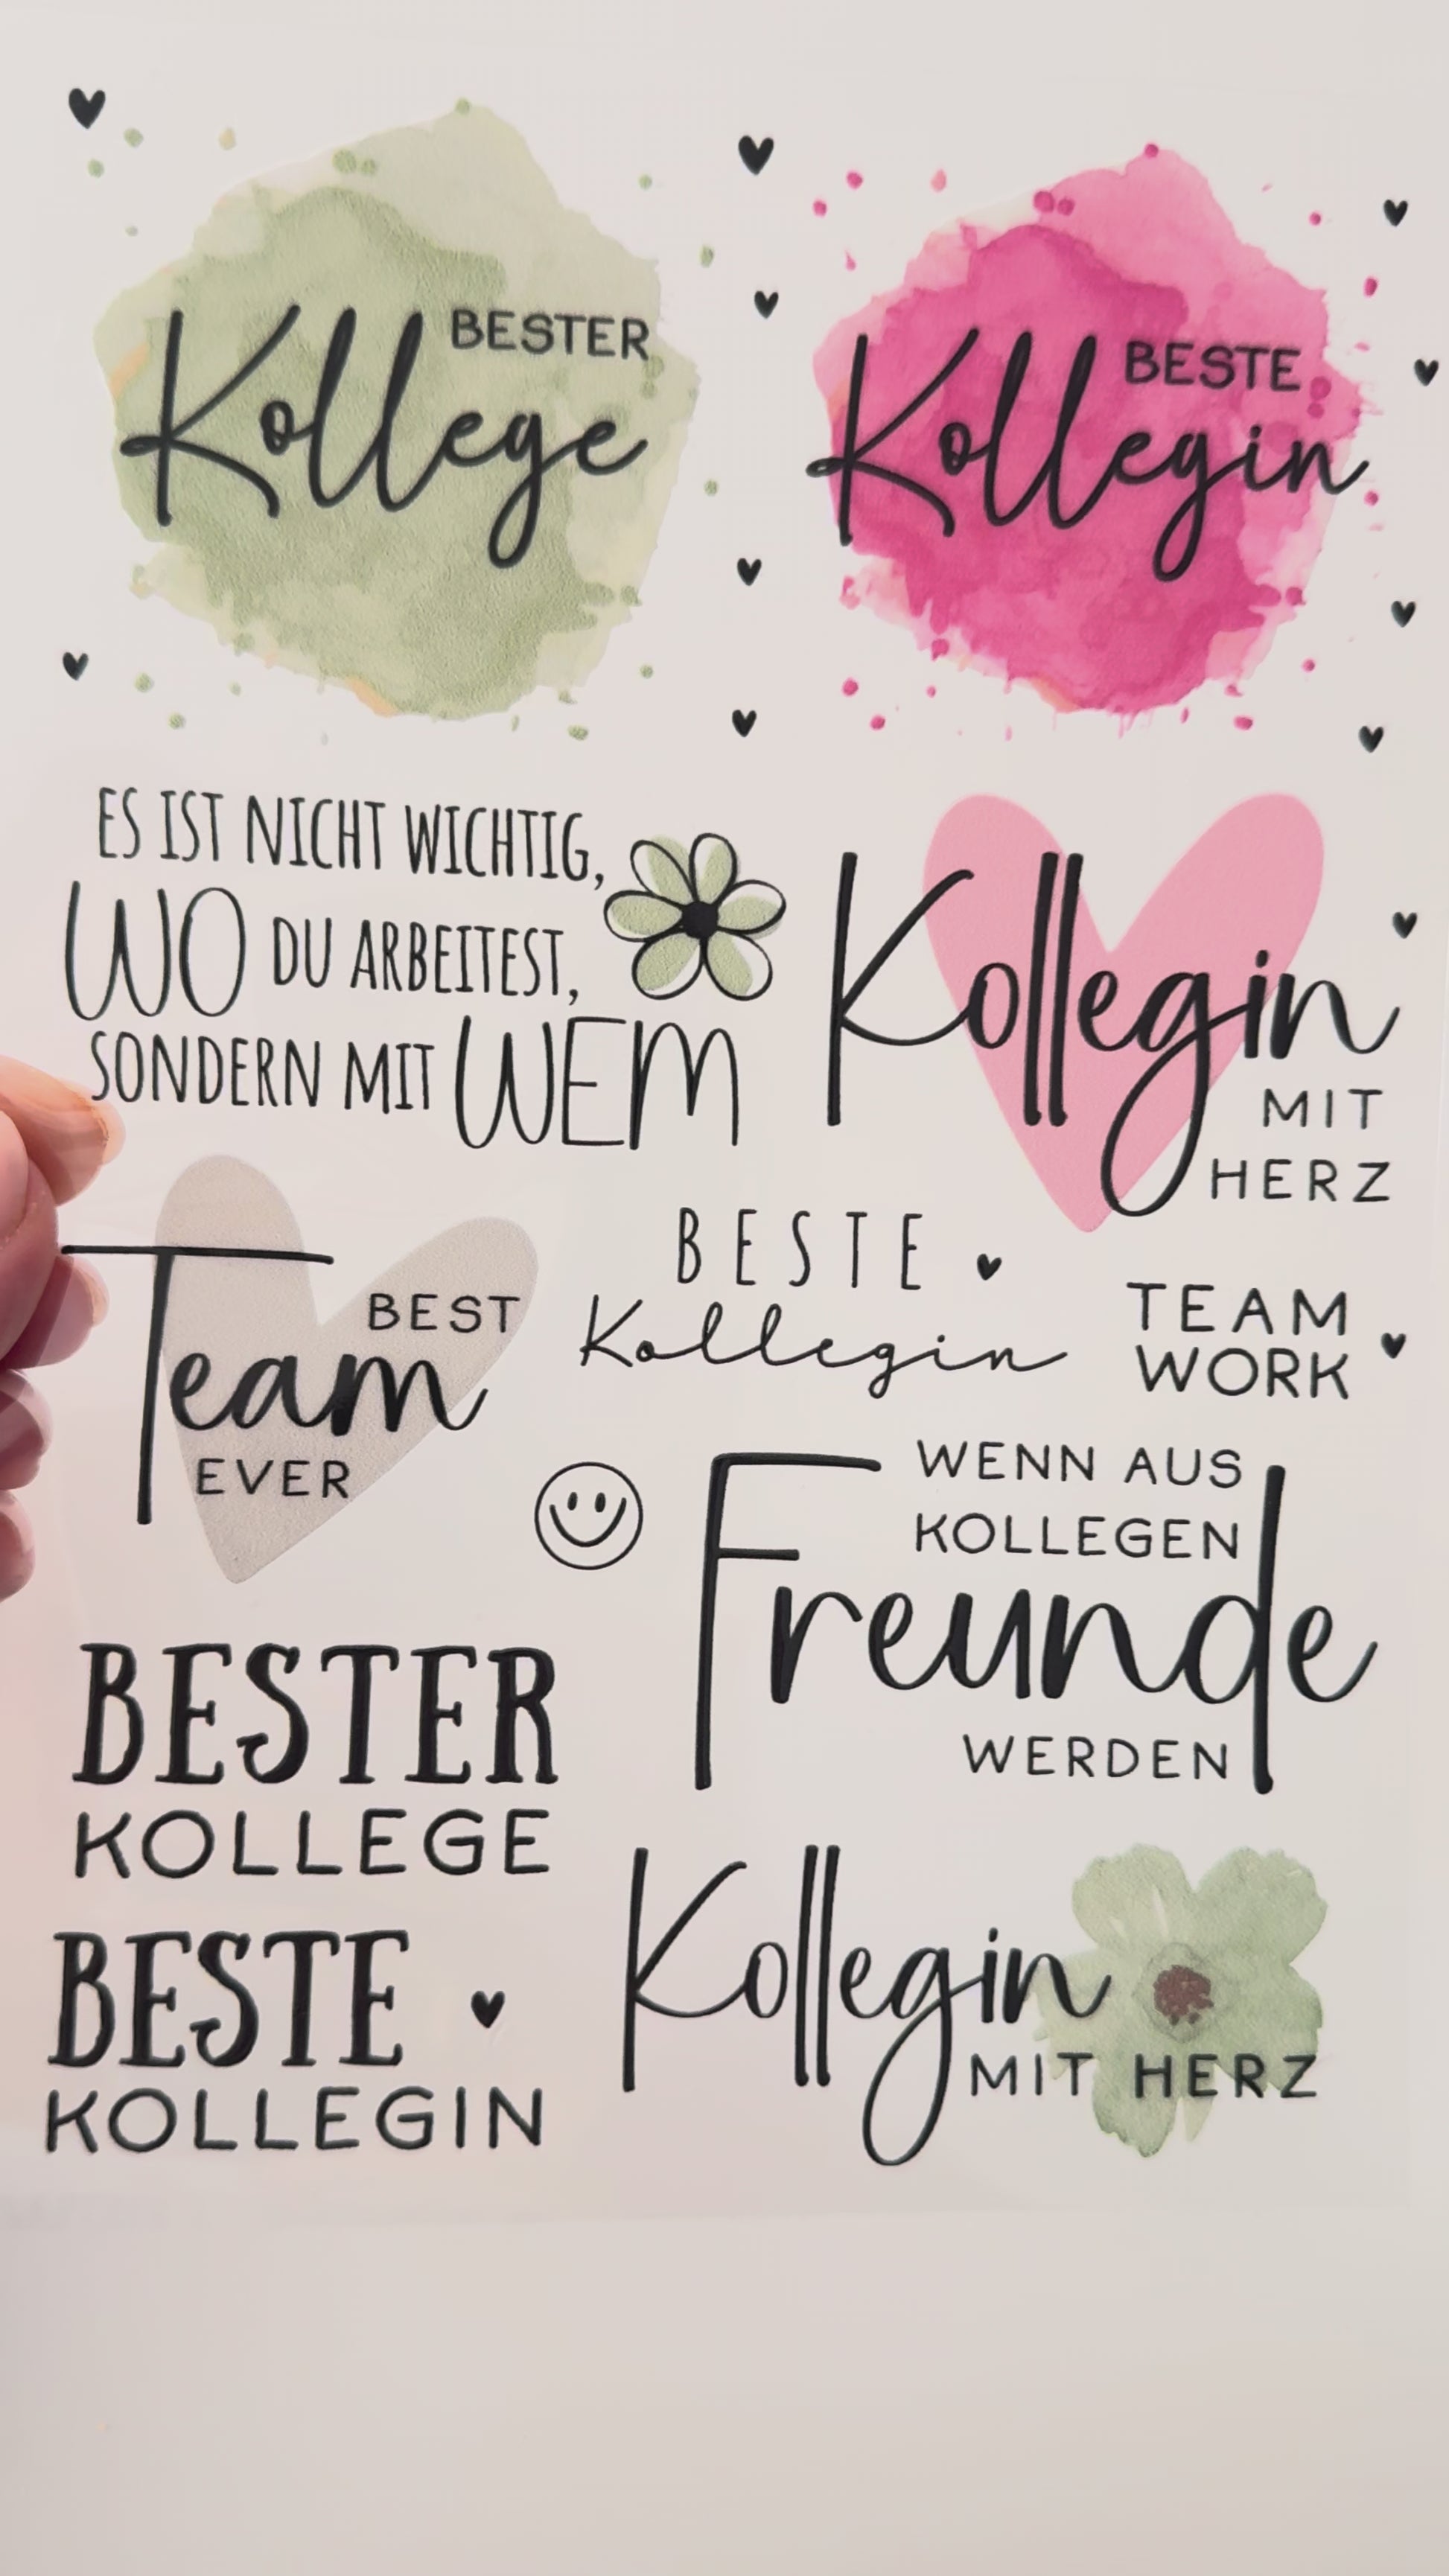 BESTER
Kollege
BESTE
Kollegin
ES IST NICHT WICHTIG,
WO DU ARBEITEST,
SONDERN MIT WEM
Kollegin
MIT
HERZ
BEST
Team
EVER
BESTE
Kollegin
TEAM
WORK
WENN AUS
KOLLEGEN
Freunde
WERDEN
BESTER
KOLLEGE
BESTE
KOLLEGIN
Kollegin
MIT HERZ